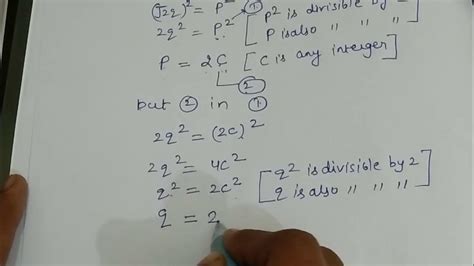 (√2q)² = P²
2q² = P² ① [P² is divisible by 2
P is also " " "]
P = 2C [C is any interger]
②
but ② in ①
2q² = (2c)²
2q² = 4c²
q² = 2c² [q² is divisible by 2
q is also " " "]
q = 2